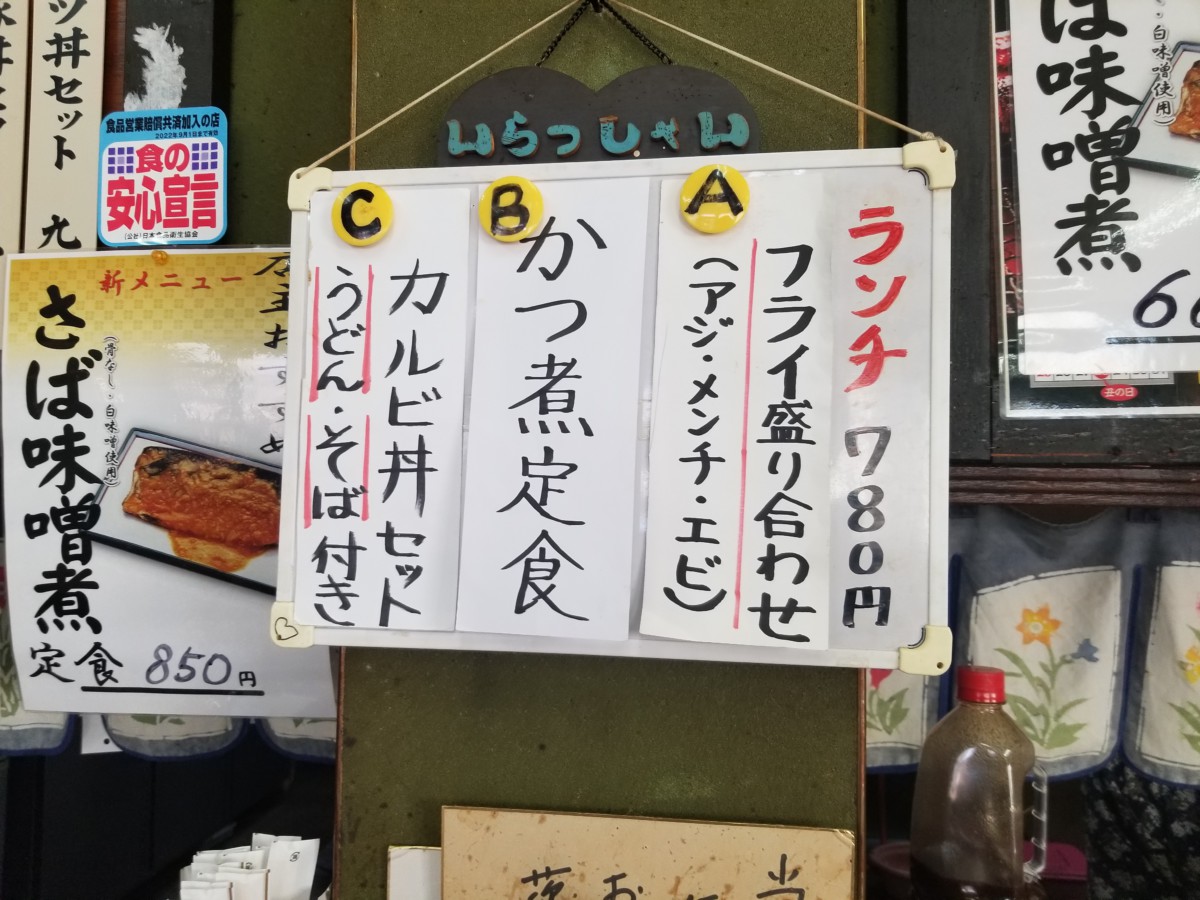 いらっしゃい
ランチ 780円
A
フライ盛り合わせ
(アジ・メンチ・エビ)
B
かつ煮定食
C
カルビ丼セット
うどん・そば付き
ツ丼セット 九
食品営業賠償共済加入の店
2022年9月1日まで有効
食の
安心宣言
(公社)日本食品衛生協会
新メニュー
店主おすすめ
さば味噌煮
(骨なし・白味噌使用)
定食 850円
さば味噌煮
・白味噌使用)
丑の日